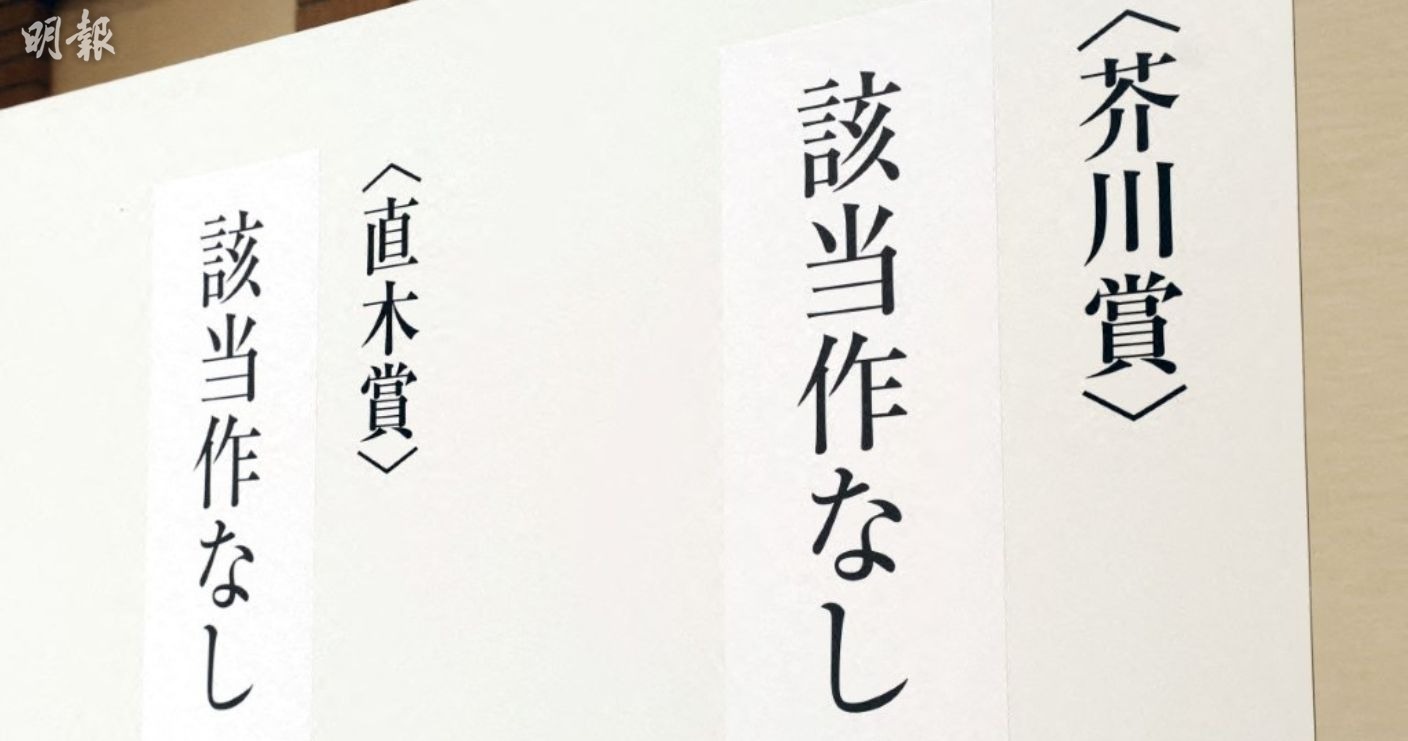 明報
〈芥川賞〉
該当作なし
〈直木賞〉
該当作なし